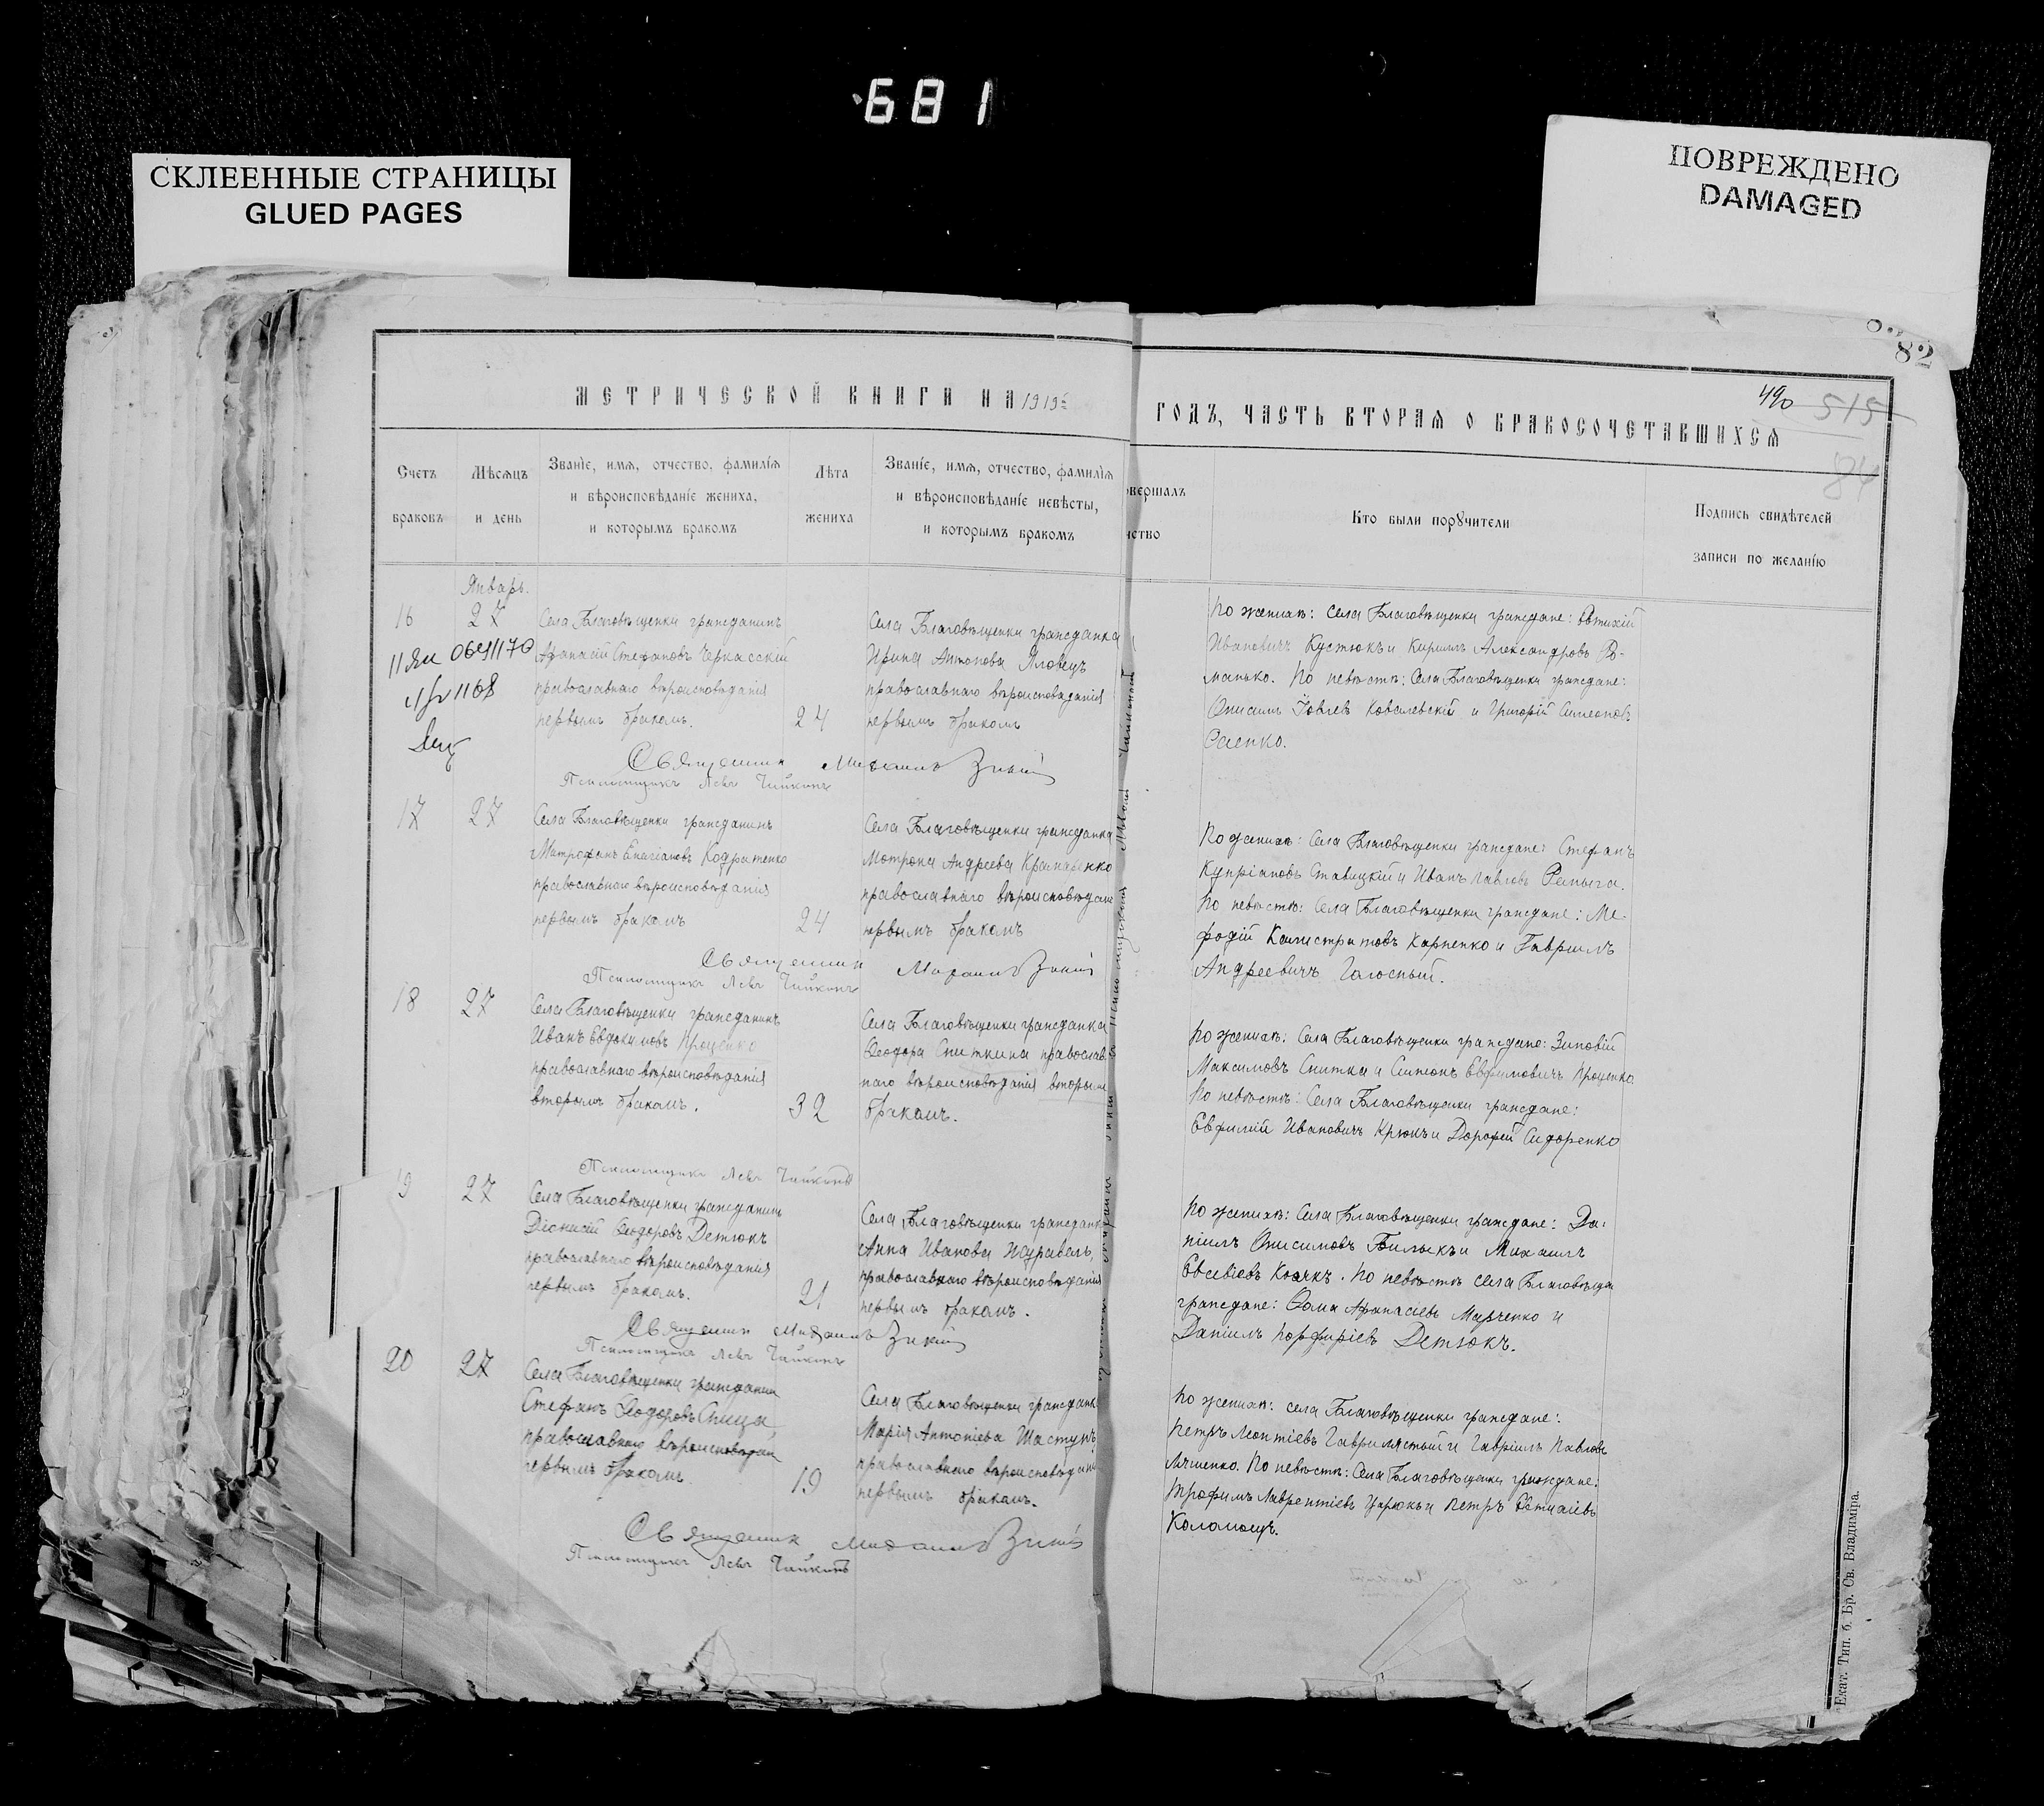 681
СКЛЕЕННЫЕ СТРАНИЦЫ
GLUED PAGES
ПОВРЕЖДЕНО
DAMAGED
82
490 515
84
МЕТРИЧЕСКОЙ КНИГИ НА 1919
ГОДЪ, ЧАСТЬ ВТОРАЯ О БРАКОСОЧЕТАВШИХСЯ
Счетъ
браковъ
Мѣсяцъ
и день
Званіе, имя, отчество, фамилія
и вѣроисповѣданіе жениха,
и которымъ бракомъ
Лѣта
жениха
Званіе, имя, отчество, фамилія
и вѣроисповѣданіе невѣсты,
и которымъ бракомъ
овершалъ
нство
Кто были порꙋчители
Подпись свидѣтелей
записи по желанію
Январь.
16
27
Села Благовѣщенки гражданинъ
Афанасій Стефановъ Черкасскій
православнаго вѣроисповѣданія
первымъ бракомъ.
24
Села Благовѣщенки гражданка
Ирина Антонова Яловецъ
православнаго вѣроисповѣданія
первымъ бракомъ
По женихѣ: села Благовѣщенки граждане: Евтихій
Ивановичъ Кустюкъ и Кириллъ Александровъ Ро-
манько. По невѣстѣ: Села Благовѣщенки граждане:
Онисимъ Іовлевъ Ковалевскій и Григорій Симеоновъ
Саенко.
Священникъ Михаилъ
Псаломщикъ Левъ
17
27
Села Благовѣщенки гражданинъ
Митрофанъ Кодратенко
православнаго вѣроисповѣданія
первымъ бракомъ
24
Села Благовѣщенки гражданка
Мотрона Андреева Крамаренко
православнаго вѣроисповѣдан
первымъ бракомъ
По женихѣ: Села Благовѣщенки граждане: Стефанъ
Купріановъ Ставицкій и Иванъ Павловъ
По невѣстѣ: Села Благовѣщенки граждане: Ме-
фодій Калистратовъ Карпенко и Гавріилъ
Андреевичъ Голосный.
Священникъ Михаилъ
Псаломщикъ Левъ
18
27
Села Благовѣщенки гражданинъ
Иванъ Евдокимовъ Проценко
православнаго вѣроисповѣданія
вторымъ бракомъ.
32
Села Благовѣщенки гражданка
Ѳеодора Сниткина православ-
наго вѣроисповѣданія вторымъ
бракомъ.
По женихѣ: Села Благовѣщенки граждане: Зиновій
Максимовъ Снитка и Симеонъ Евфимовичъ Проценко.
По невѣстѣ: Села Благовѣщенки граждане:
Евфимій Ивановичъ Крюкъ и Дорофей Сидоренко
Псаломщикъ Левъ
19
27
Села Благовѣщенки гражданинъ
Діонисій Ѳеодоровъ Детюкъ
православнаго вѣроисповѣданія
первымъ бракомъ.
21
Села Благовѣщенки гражданк
Анна Иванова Журавель,
православнаго вѣроисповѣданія
первымъ бракомъ.
По женихѣ: Села Благовѣщенки граждане: Да-
ніилъ Онисимовъ Билыкъ и Михаилъ
Евсевіевъ. По невѣстѣ села Благовѣщен
граждане: Ѳома Афанасіевъ Марченко и
Даніилъ Порфиріевъ Детюкъ.
Священникъ Михаилъ
Псаломщикъ Левъ
20
27
Села Благовѣщенки гражданин
Стефанъ Ѳеодоровъ Спица
православнаго вѣроисповѣдан
первымъ бракомъ
19
Села Благовѣщенки гражданк
Марія Антоніева Шастунъ
православнаго вѣроисповѣдан
первымъ бракомъ.
По женихѣ: села Благовѣщенки граждане:
Петръ Леонтіевъ и Гавріилъ Павловъ
Ляшенко. По невѣстѣ: Села Благовѣщенки граждане:
Трофимъ Лаврентіевъ и Петръ
Коломоецъ.
Священникъ Михаилъ
Псаломщикъ Левъ
Екат. Тип. б. Бр. Св. Владиміра.